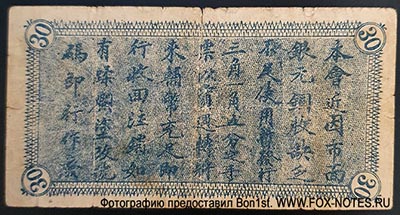 30
30
本會近因市面
銀元銅枚缺乏
不足使用暫發行
三角一角五分之錢
票以資週轉將
來輔幣充足即
行收回注銷如
有
碼即行作廢
30
30
Фотографию предоставил Bon1st. WWW.FOX-NOTES.RU